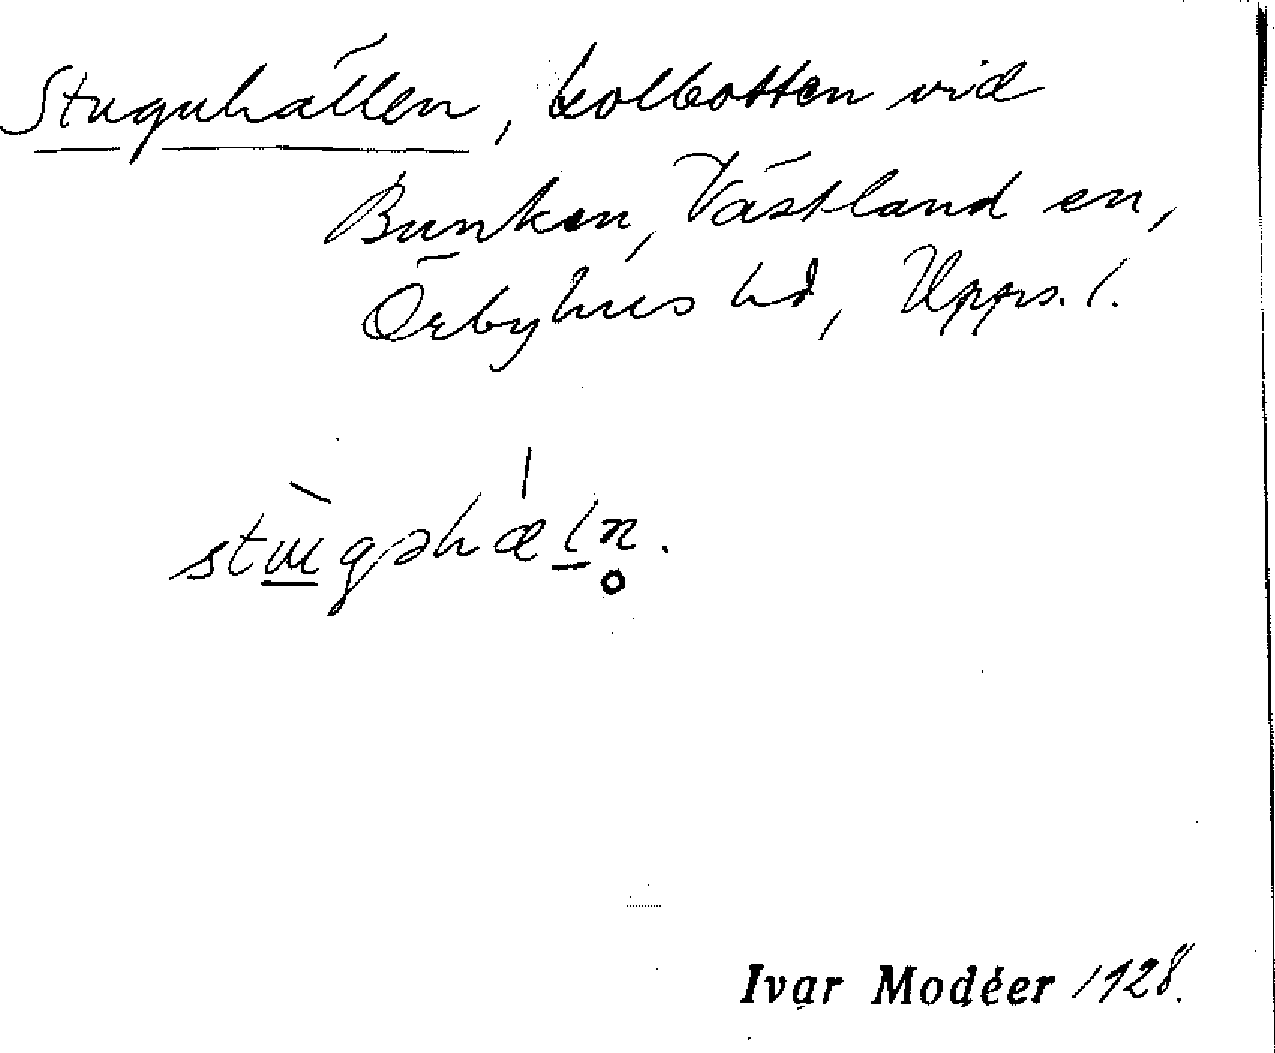 Stuguhällen, kolbotten vid
Bunken, Västland sn,
Örbyhus hd, Upps. l.
stu̲gəhæl̲n̥.
Ivar Modéer 1928.